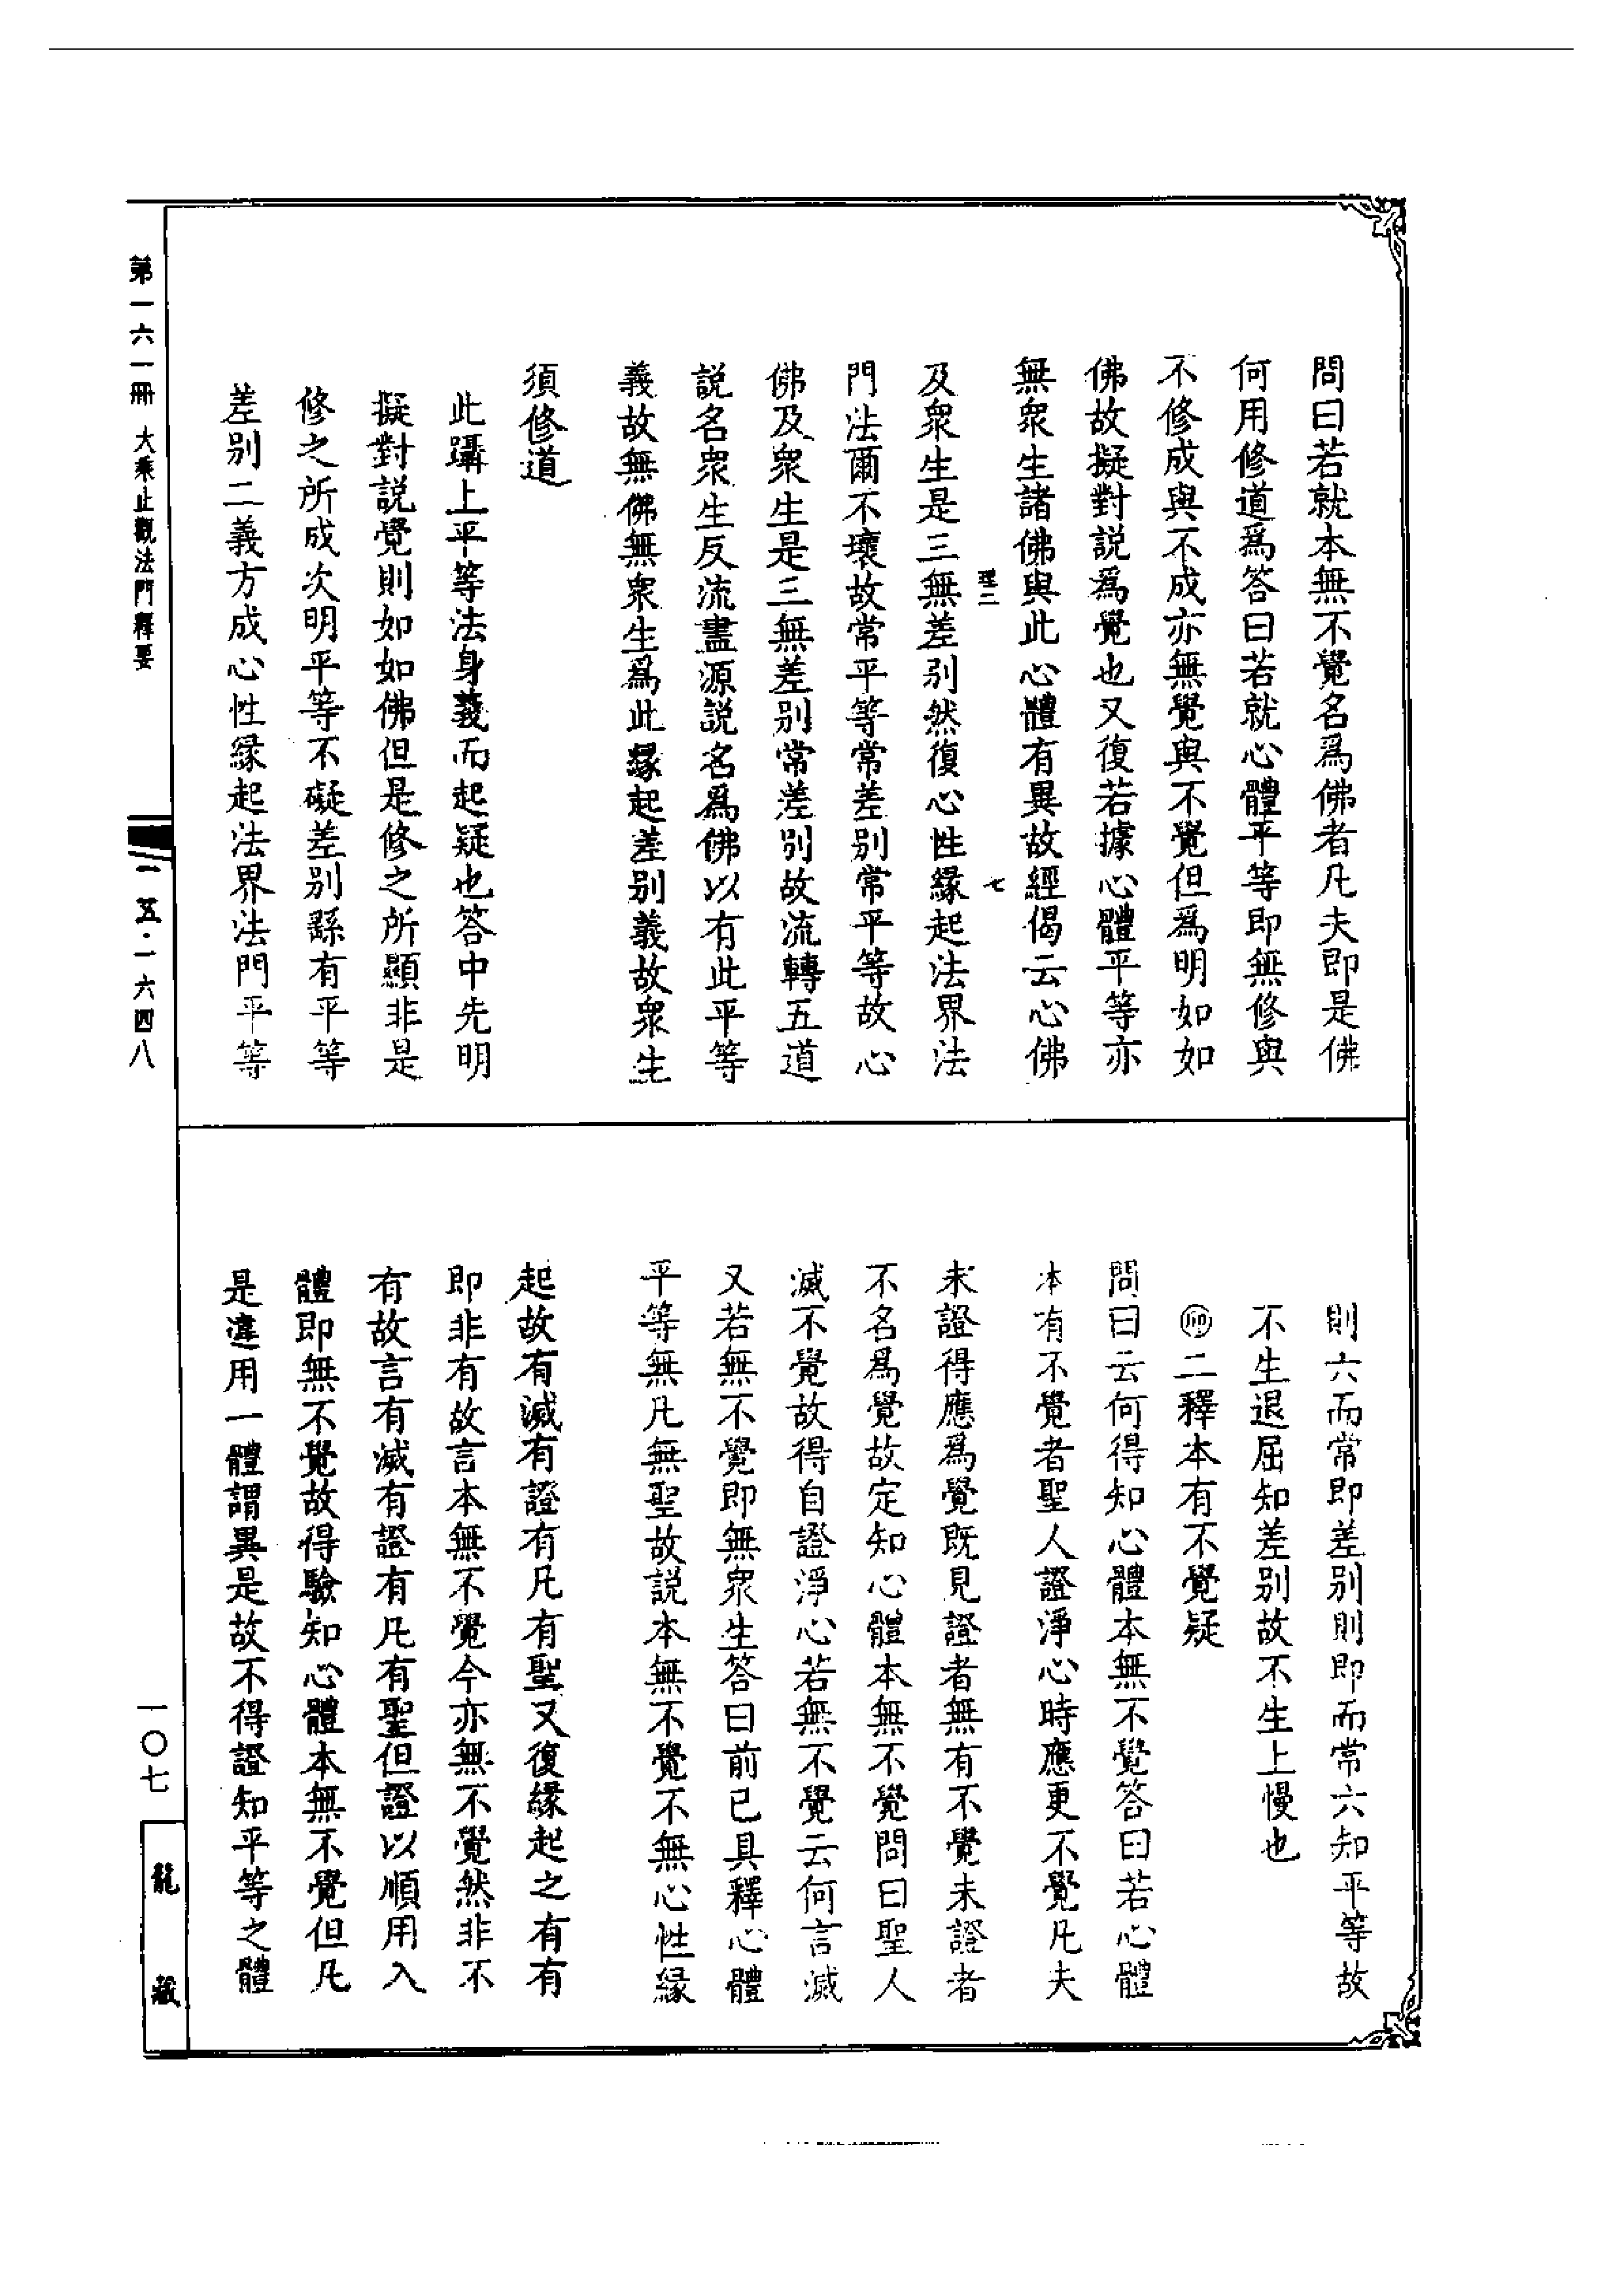 問曰若就本無不覺名爲佛者凡夫即是佛
何用修道爲答曰若就心體平等即無修與
不修成與不成亦無覺與不覺但爲明如如
佛故擬對説爲覺也又復若據心體平等亦
無衆生諸佛與此心體有異故經偈云心佛
理二
七
及衆生是三無差别然復心性緣起法界法
門法爾不壞故常平等常差别常平等故心
佛及衆生是三無差别常差别故流轉五道
説名衆生反流盡源説名爲佛以有此平等
義故無佛無衆生爲此緣起差别義故衆生
須修道
此躡上平等法身義而起疑也答中先明
擬對説覺則如如佛但是修之所顯非是
修之所成次明平等不礙差别繇有平等
差别二義方成心性緣起法界法門平等
則六而常即差别則即而常六知平等故
不生退屈知差别故不生上慢也
㊞二釋本有不覺疑
問曰云何得知心體本無不覺答曰若心體
本有不覺者聖人證淨心時應更不覺凡夫
未證得應爲覺既見證者無有不覺未證者
不名爲覺故定知心體本無不覺問曰聖人
滅不覺故得自證淨心若無不覺云何言滅
又若無不覺即無衆生答曰前已具釋心體
平等無凡無聖故説本無不覺不無心性緣
起故有滅有證有凡有聖又復緣起之有有
即非有故言本無不覺今亦無不覺然非不
有故言有滅有證有凡有聖但證以順用入
體即無不覺故得驗知心體本無不覺但凡
是違用一體謂異是故不得證知平等之體
第一六一冊　大乘止觀法門釋要
一五·一六四八
一〇七
龍藏